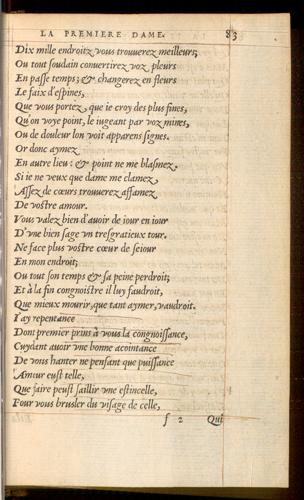 LA PREMIERE DAME. 83
Dix mille endroitz vous trouuerez meilleurs,
Ou tout soudain conuertirez voz pleurs
En passe temps; & changerez en fleurs
Le faix d'espines,
Que vous portez, que ie croy des plus fines,
Qu'on voye point, le iugeant par voz mines,
Ou de douleur lon voit apparens signes.
Or donc aymez
En autre lieu: & point ne me blasmez,
Si ie ne veux que dame me clamez,
Assez de cœurs trouuerez affamez
De vostre amour.
Vous valez bien d'auoir de iour en iour
D'vne bien sage vn tresgratieux tour.
Ne face plus vostre cœur de seiour
En mon endroit;
Ou tout son temps & sa peine perdroit;
Et à la fin congnoistre il luy faudroit,
Que mieux mourir, que tant aymer, vaudroit.
I'ay repentance
Dont premier prins à vous la congnoissance,
Cuydant auoir vne bonne acointance
De vous hanter ne pensant que puissance
Amour eust telle,
Que faire peust saillir vne estincelle,
Pour vous brusler du visage de celle,
f 2 Qui